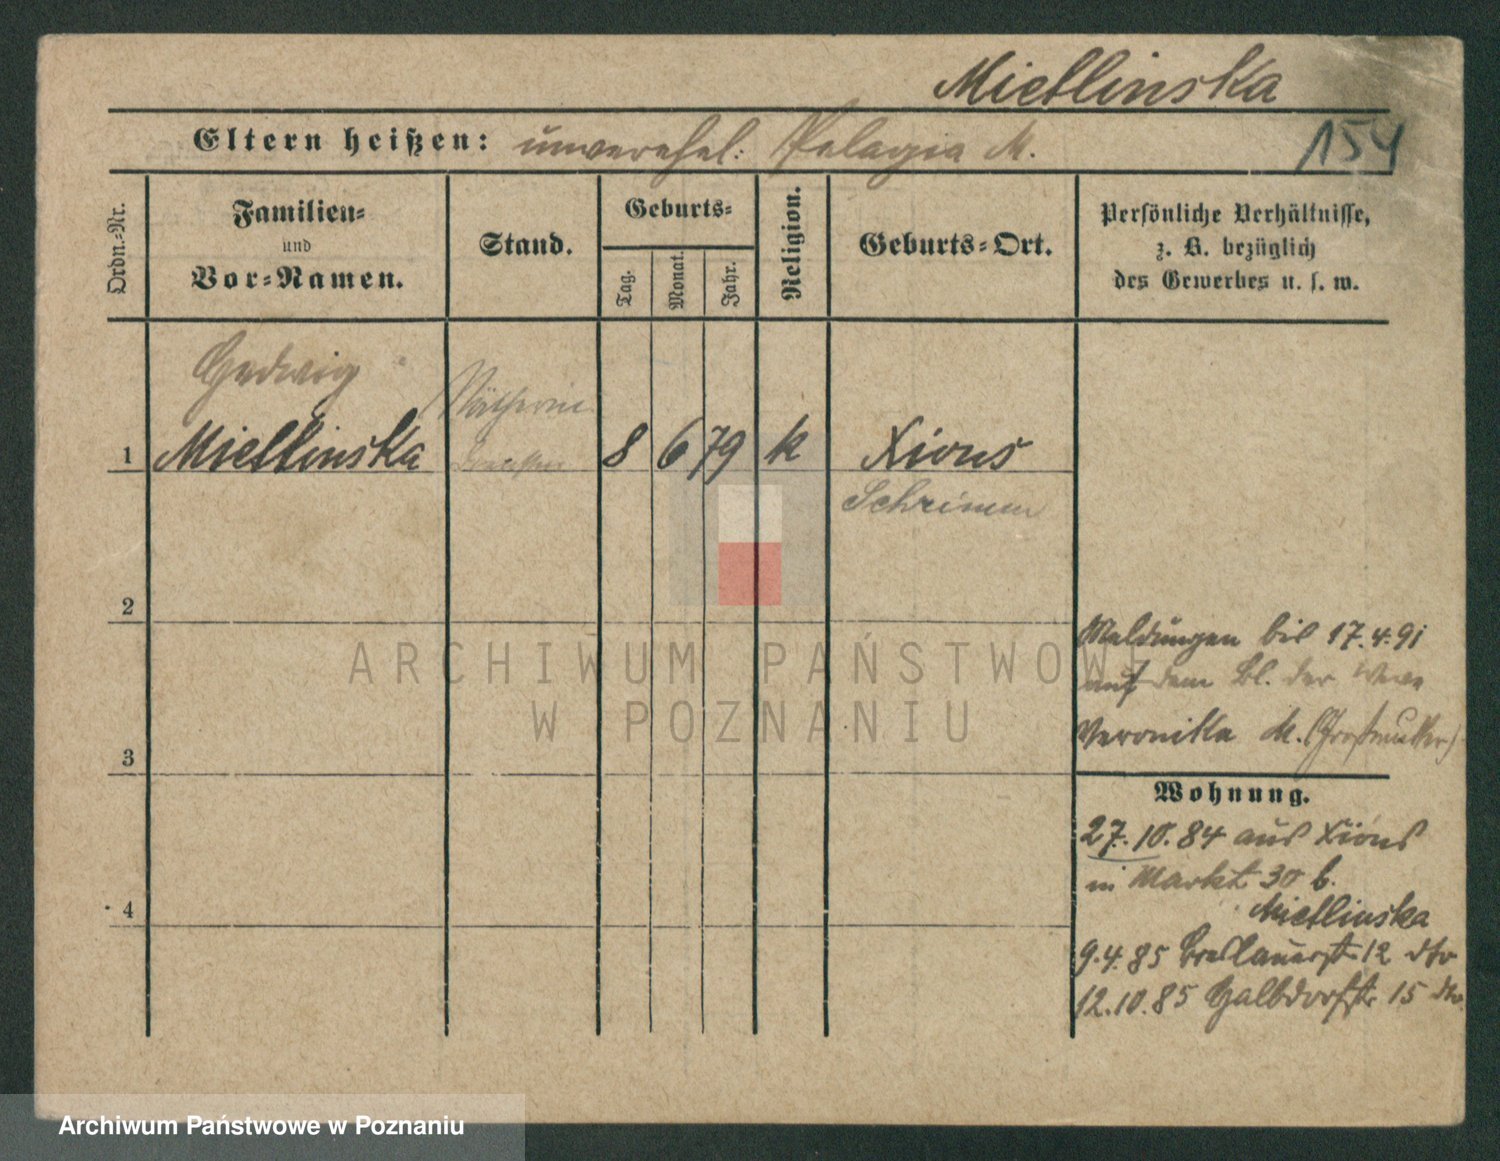 Mietlinska
Eltern heißen: unverehel: Pelagia M.
154
Ordn.-Nr.
Familien-
und
Vor-Namen.
Stand.
Geburts-
Tag.
Monat.
Jahr.
Religion.
Geburts-Ort.
Persönliche Verhältnisse,
z. B. bezüglich
des Gewerbes u. s. w.
Hedwig
Nätherin
1 Mietlinska 8 6 79 k Xions
Schrimm
2
Meldungen bis 17.4.91
auf dem Bl. der Wwe
Veronika M. (Großmutter)
3
Wohnung.
27.10.84 aus Xions
in Markt 30 b.
Mietlinska
4
9.4.85 Breslauerst 12 dto
12.10.85 Halbdorfstr 15 dto
ARCHIWUM PAŃSTWOWE
W POZNANIU
Archiwum Państwowe w Poznaniu